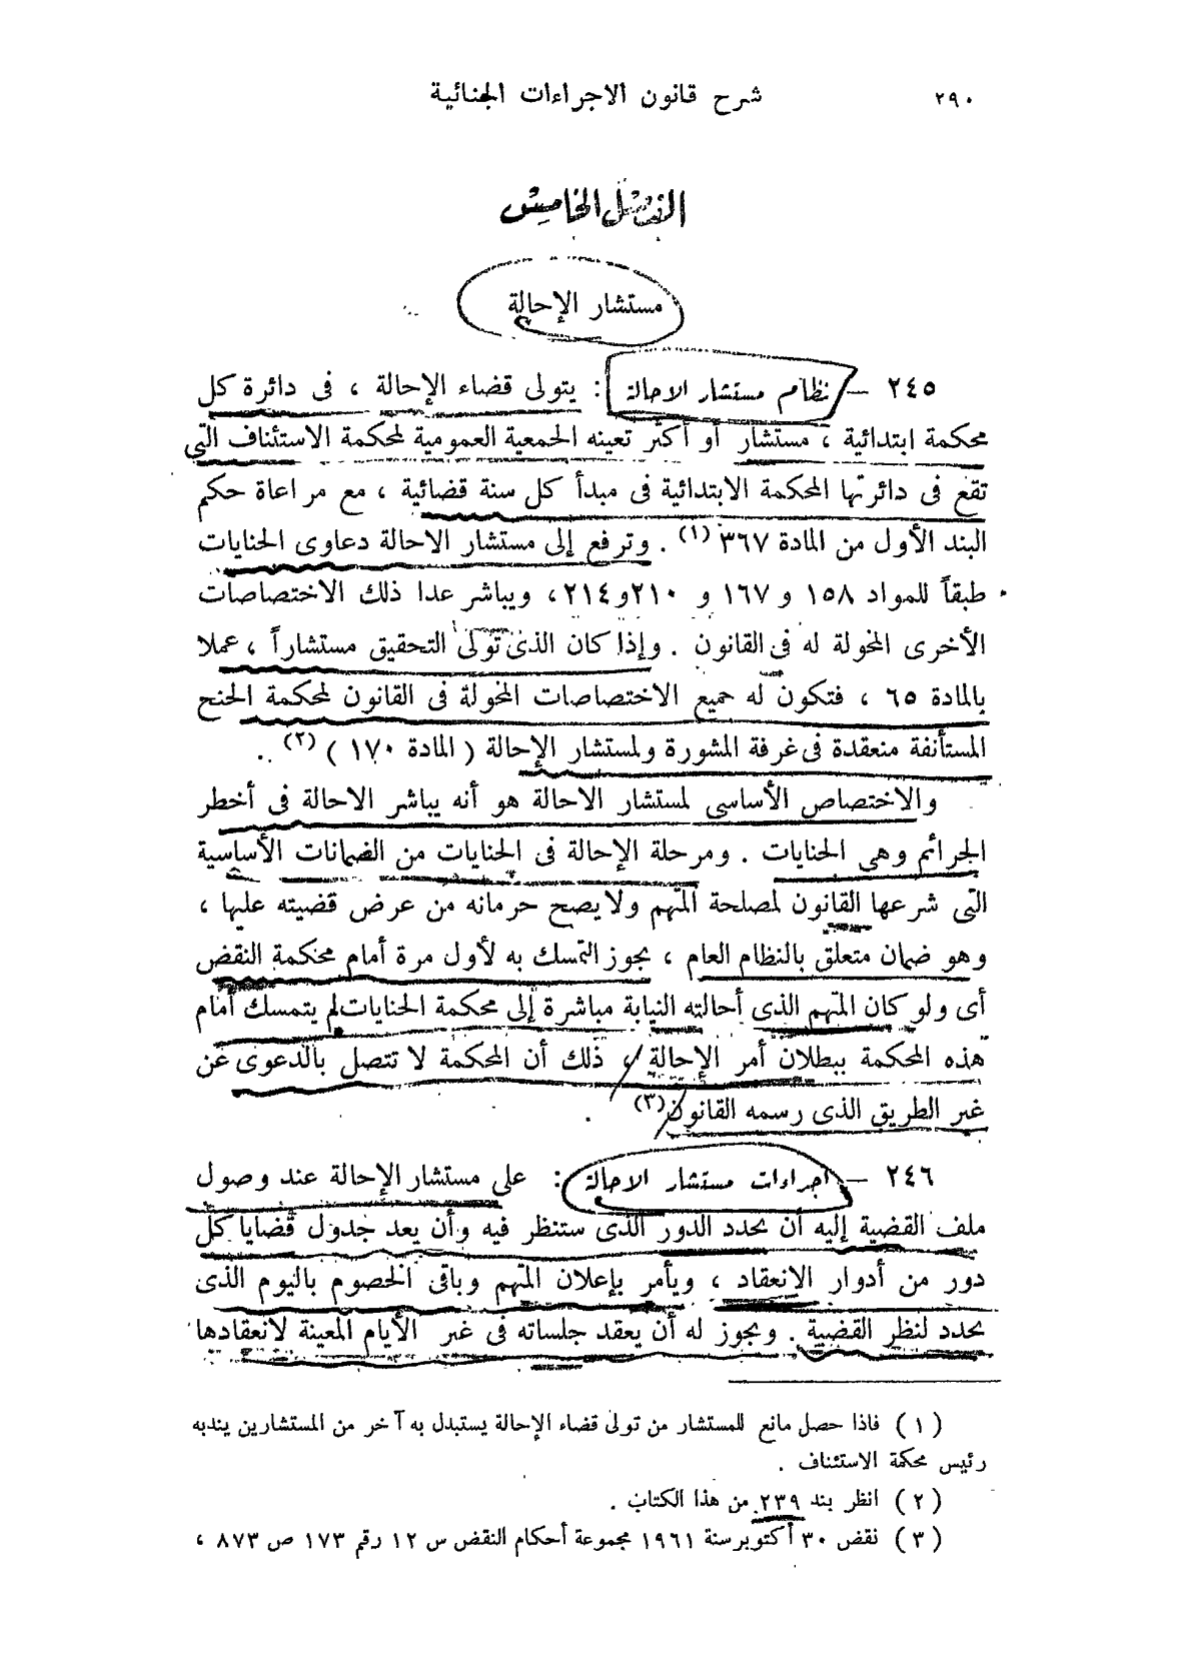 ٢٩٠
شرح قانون الاجراءات الجنائية
الفصل الخامس
مستشار الإحالة
٢٤٥ – نظام مستشار الاحالة : يتولى قضاء الإحالة ، فى دائرة كل
محكمة ابتدائية ، مستشار أو أكثر تعينه الجمعية العمومية لمحكمة الاستئناف التى
تقع فى دائرتها المحكمة الابتدائية فى مبدأ كل سنة قضائية ، مع مراعاة حكم
البند الأول من المادة ٣٦٧ (١) . وترفع إلى مستشار الاحالة دعاوى الجنايات
طبقاً للمواد ١٥٨ و ١٦٧ و ٢١٠ و٢١٤، ويباشر عدا ذلك الاختصاصات
الأخرى المخولة له فى القانون . وإذا كان الذى تولى التحقيق مستشاراً ، عملا
بالمادة ٦٥ ، فتكون له جميع الاختصاصات المخولة فى القانون لمحكمة الجنح
المستأنفة منعقدة فى غرفة المشورة ولمستشار الإحالة ( المادة ١٧٠ ) (٢) .
والاختصاص الأساسى لمستشار الاحالة هو أنه يباشر الاحالة فى أخطر
الجرائم وهى الجنايات . ومرحلة الإحالة فى الجنايات من الضمانات الأساسية
التى شرعها القانون لمصلحة المتهم ولا يصح حرمانه من عرض قضيته عليها ،
وهو ضمان متعلق بالنظام العام ، يجوز التمسك به لأول مرة أمام محكمة النقض
أى ولو كان المتهم الذى أحالته النيابة مباشرة إلى محكمة الجنايات لم يتمسك أمام
هذه المحكمة ببطلان أمر الإحالة ، ذلك أن المحكمة لا تتصل بالدعوى عن
غير الطريق الذى رسمه القانون (٣) .
٢٤٦ – اجراءات مستشار الاحالة : على مستشار الإحالة عند وصول
ملف القضية إليه أن يحدد الدور الذى ستنظر فيه وأن يعد جدول قضايا كل
دور من أدوار الانعقاد ، ويأمر بإعلان المتهم وباقى الخصوم باليوم الذى
يحدد لنظر القضية . ويجوز له أن يعقد جلساته فى غير الأيام المعينة لانعقادها
( ١ ) فاذا حصل مانع للمستشار من تولى قضاء الإحالة يستبدل به آخر من المستشارين يندبه
رئيس محكمة الاستئناف .
( ٢ ) انظر بند ٢٣٩ من هذا الكتاب .
( ٣ ) نقض ٣٠ أكتوبر سنة ١٩٦١ مجموعة أحكام النقض س ١٢ رقم ١٧٣ ص ٨٧٣ ،